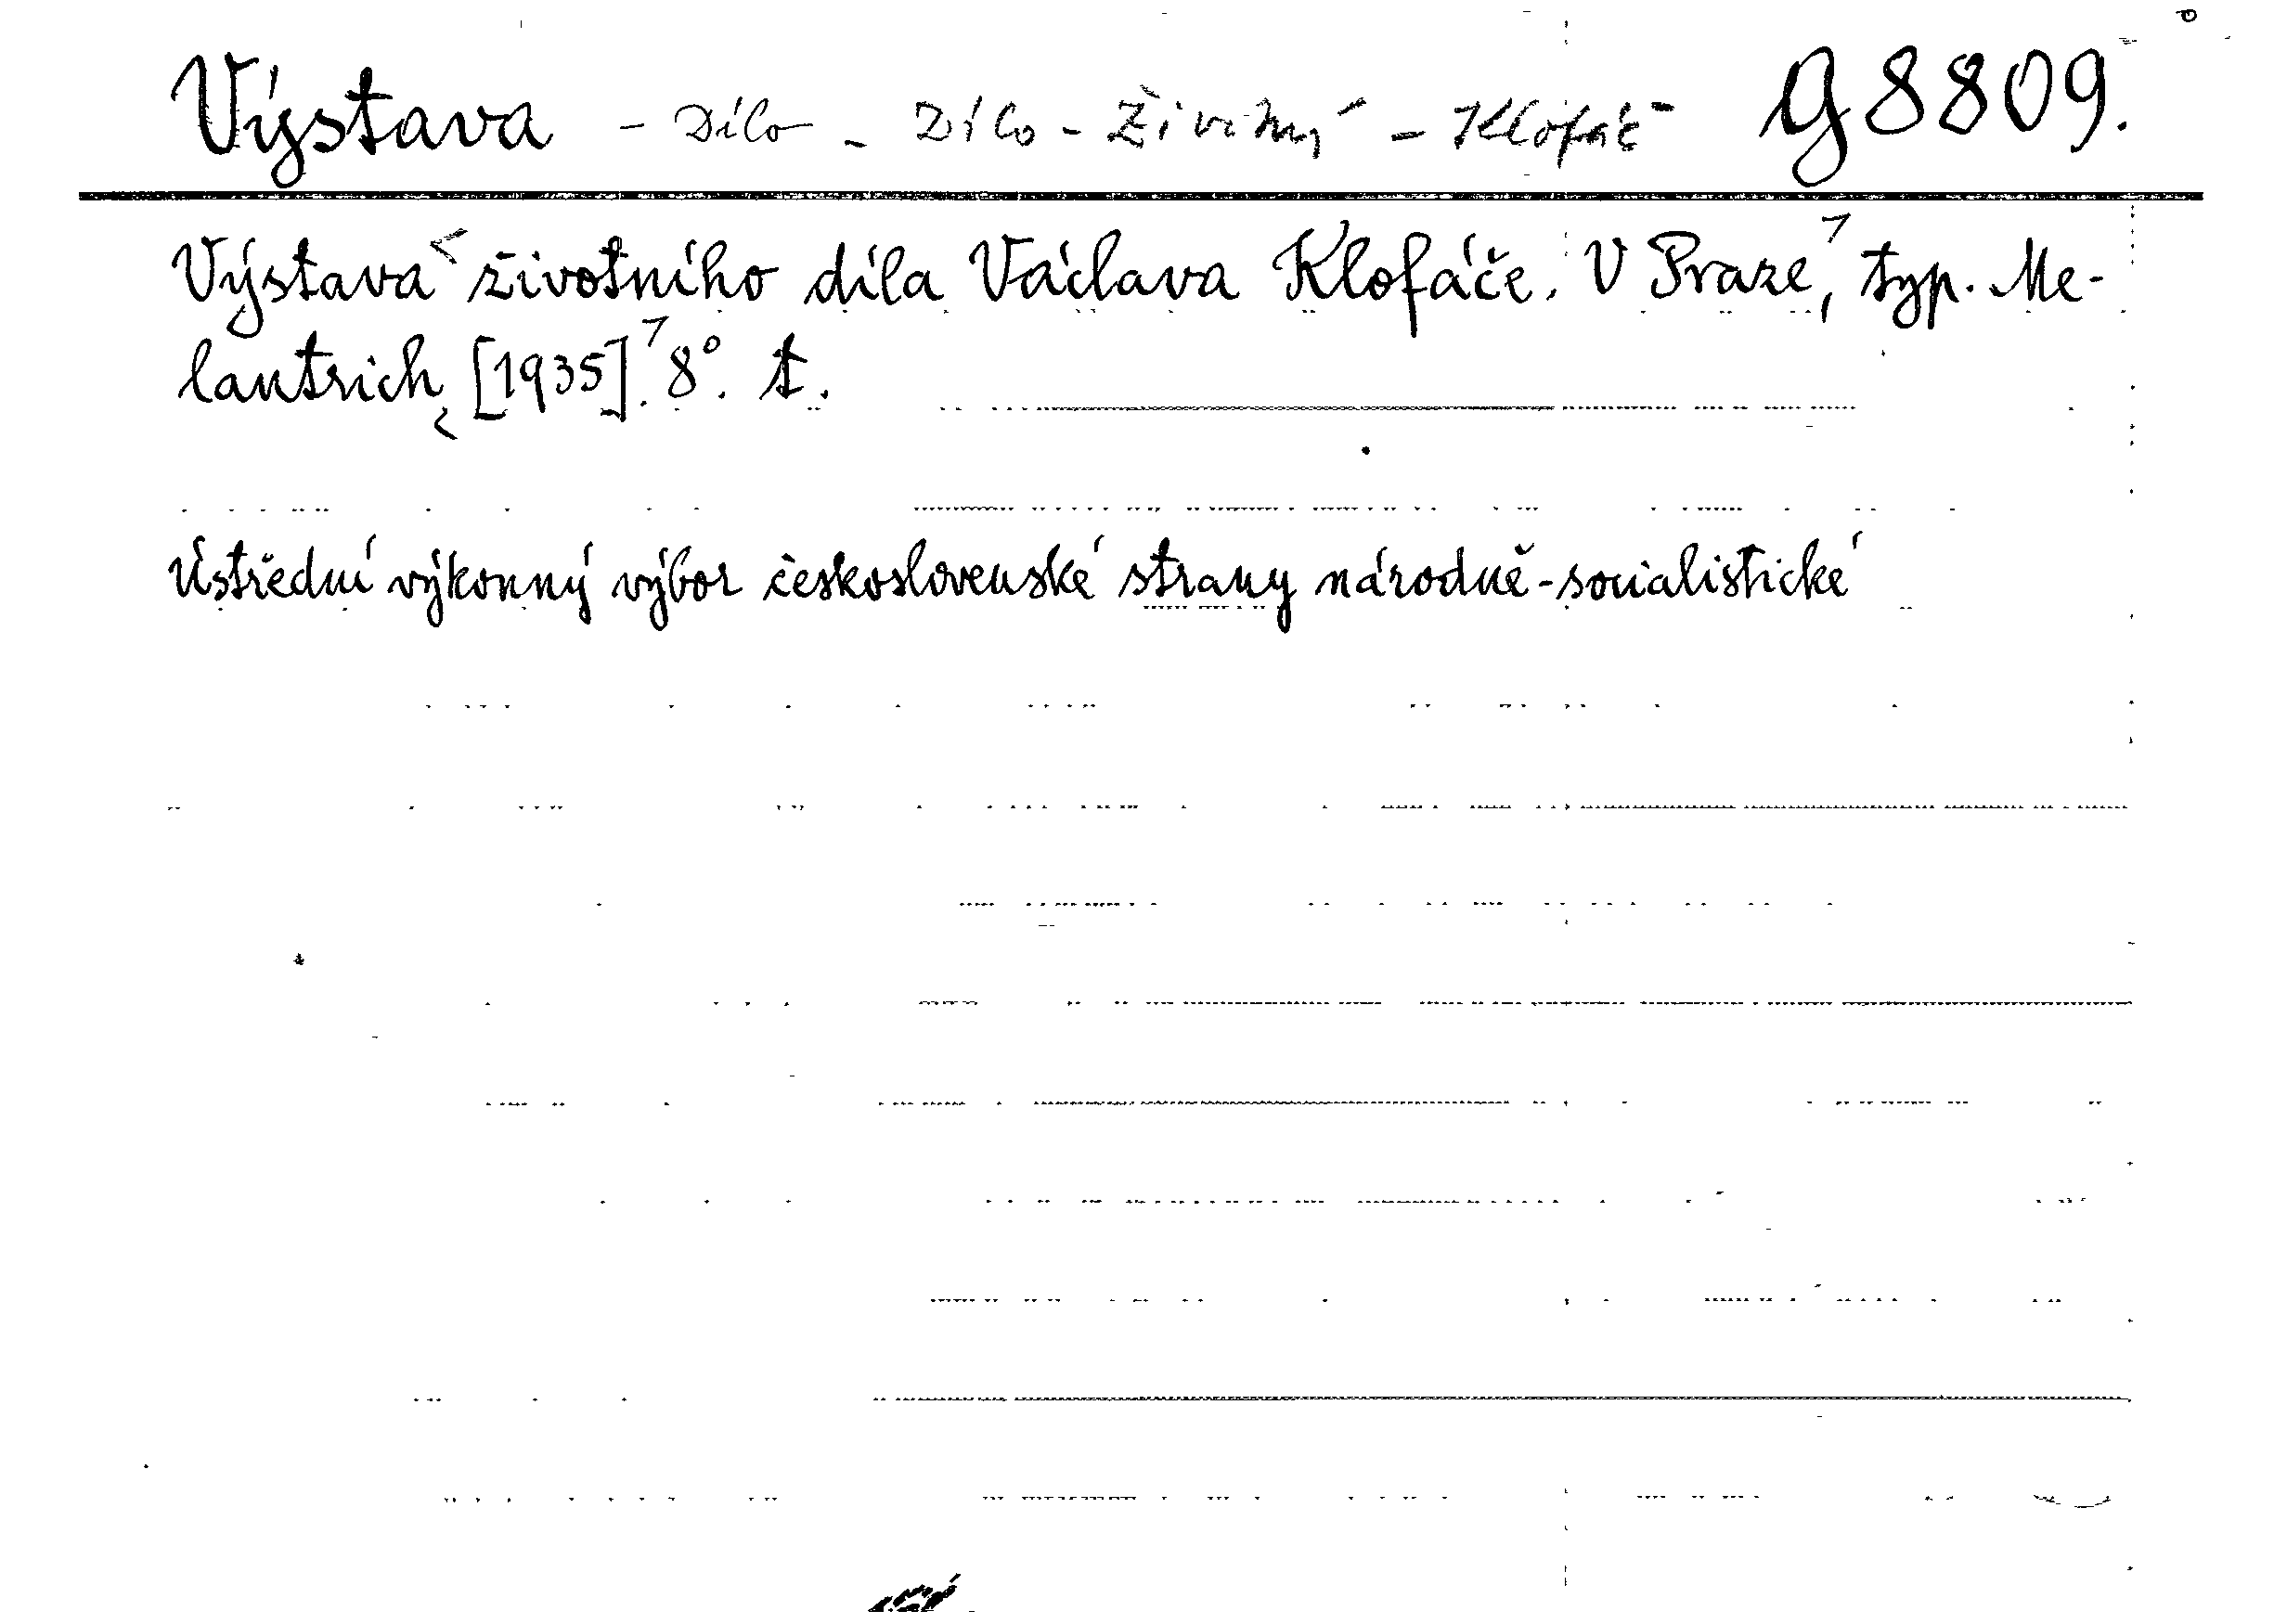 Výstava - Dílo - Dílo - Životný - Klofáč g 8809.
Výstava životního díla Václava Klofáče. V Praze, typ. Me-
lantrich, [1935]. 8°. t.
Ústřední výkonný výbor československé strany národně-socialistické